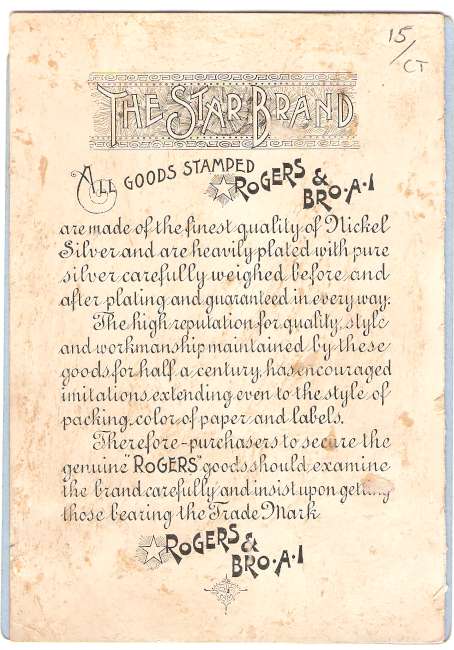 15/CT
THE STAR BRAND
ALL GOODS STAMPED ROGERS &
BRO·A·1
are made of the finest quality of Nickel
Silver and are heavily plated with pure
silver carefully weighed before and
after plating and guaranteed in every way.
The high reputation for quality, style
and workmanship maintained by these
goods, for half a century, has encouraged
imitations, extending even to the style of
packing, color of paper and labels.
Therefore-purchasers to secure the
genuine "ROGERS" goods should examine
the brand carefully and insist upon getting
those bearing the Trade Mark
ROGERS &
BRO·A·1